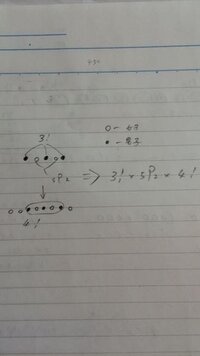 3!
○-女子
●-男子
5P2 ⇒ 3! × 5P2 × 4!
4!